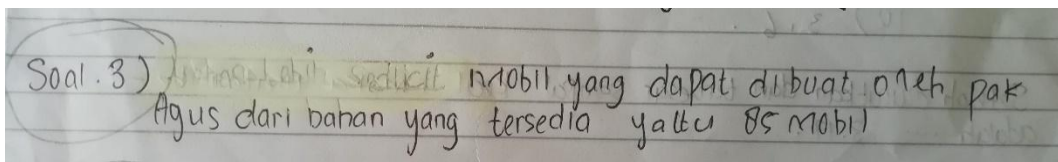 Soal. 3) sedikit Mobil yang dapat dibuat oleh pak
Agus dari bahan yang tersedia yaitu 85 Mobil